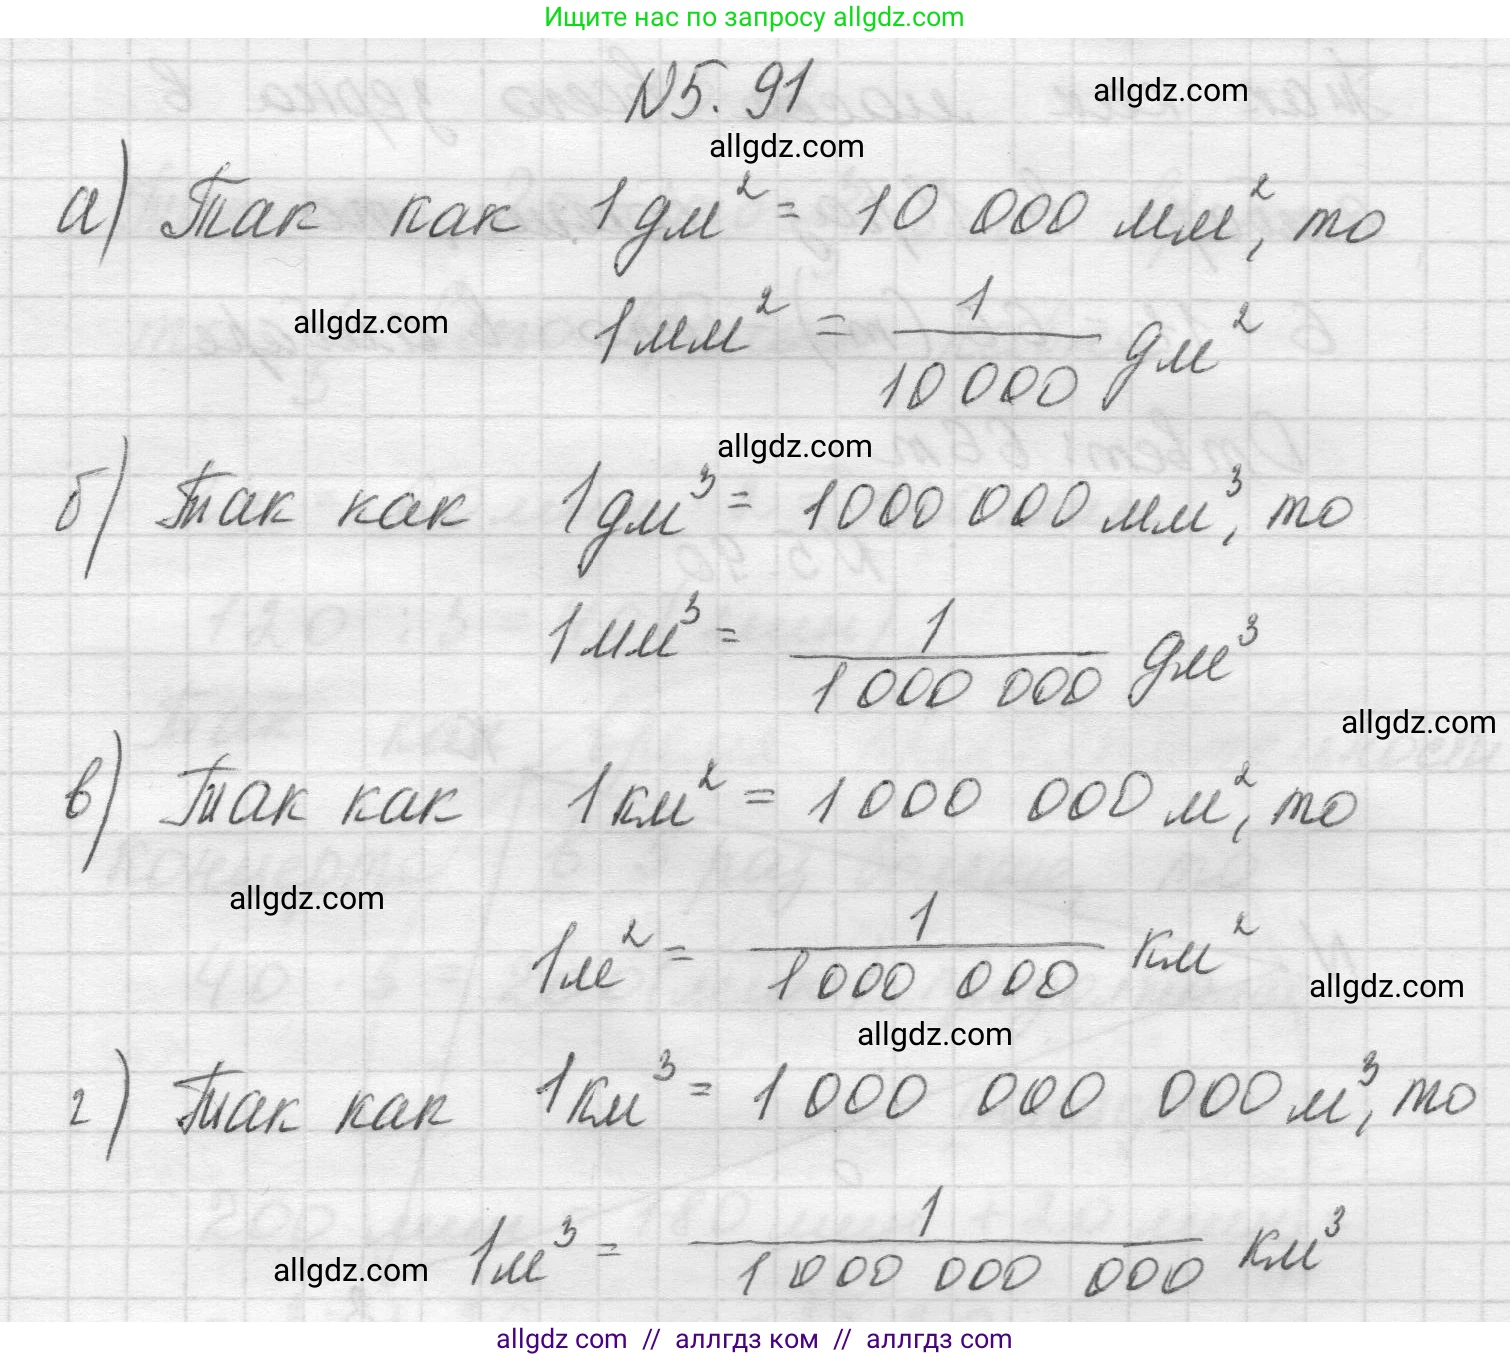 Ищите нас по запросу allgdz.com
N5.91
allgdz.com
allgdz.com
а) Так как 1дм² = 10 000 мм², то
allgdz.com
1мм² = 1/10 000 дм²
allgdz.com
б) Так как 1дм³ = 1000 000 мм³, то
1мм³ = 1/1 000 000 дм³
allgdz.com
в) Так как 1км² = 1 000 000 м², то
allgdz.com
1м² = 1/1 000 000 км²
allgdz.com
allgdz.com
г) Так как 1км³ = 1 000 000 000 м³, то
1м³ = 1/1 000 000 000 км³
allgdz.com
allgdz.com // аллгдз ком // аллгдз.com